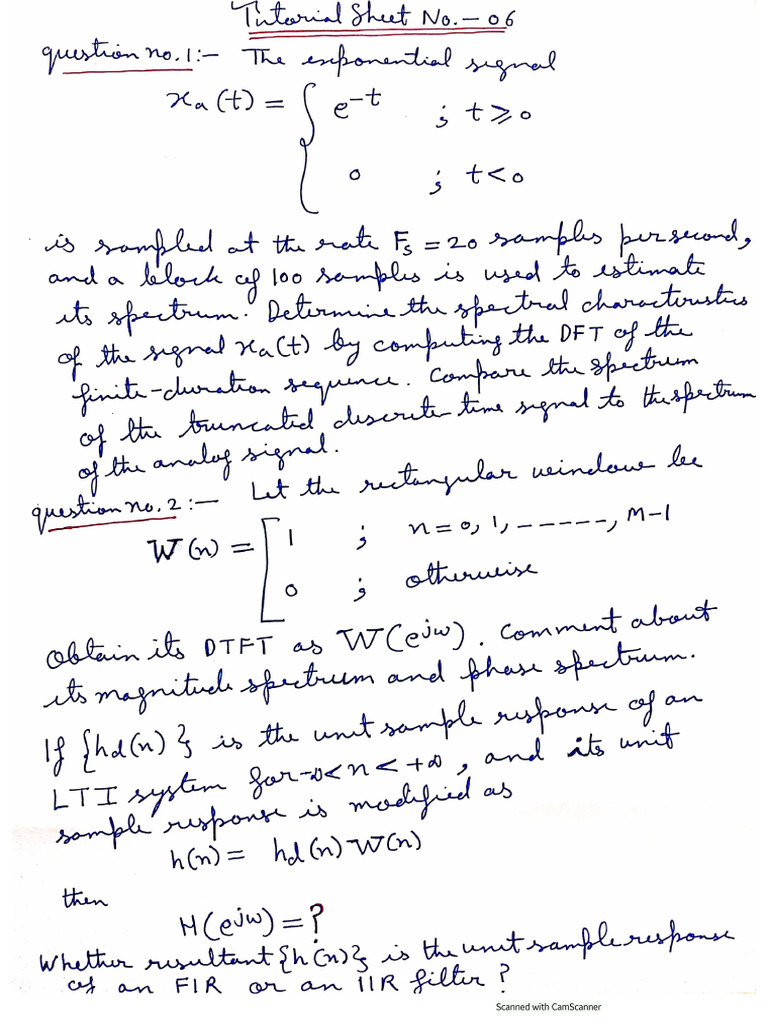 Tutorial Sheet No.-06
question no.1:- The exponential signal
xa(t) = { e^-t ; t⩾0
0 ; t<0
is sampled at the rate Fs = 20 samples per second,
and a block of 100 samples is used to estimate
its spectrum. Determine the spectral characteristics
of the signal xa(t) by computing the DFT of the
finite-duration sequence. Compare the spectrum
of the truncated discrete-time signal to the spectrum
of the analog signal.
question no.2:- Let the rectangular window be
W(n) = [ 1 ; n=0, 1, -----, M-1
0 ; otherwise
Obtain its DTFT as W(e^jw). Comment about
its magnitude spectrum and phase spectrum.
If {hd(n)} is the unit sample response of an
LTI system for -∞<n<+∞, and its unit
sample response is modified as
h(n) = hd(n) W(n)
then
H(e^jw) = ?
Whether resultant {h(n)} is the unit sample response
of an FIR or an IIR filter?
Scanned with CamScanner